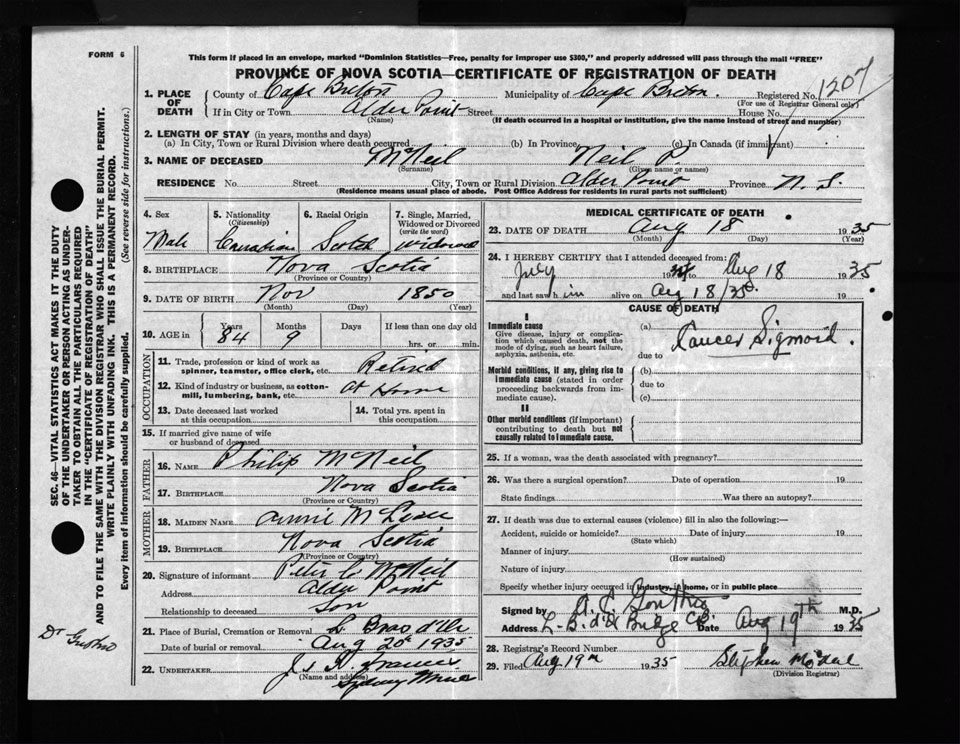 FORM 6
This form if placed in an envelope, marked "Dominion Statistics—Free, penalty for improper use $300," and properly addressed will pass through the mail "FREE"
PROVINCE OF NOVA SCOTIA—CERTIFICATE OF REGISTRATION OF DEATH
1207
1. PLACE OF DEATH County of Cape Breton Municipality of Cape Breton. Registered No.
(For use of Registrar General only)
If in City or Town Alder Point Street House No.
(Name) (If death occurred in a hospital or institution, give the name instead of street and number)
2. LENGTH OF STAY (in years, months and days)
(a) In City, Town or Rural Division where death occurred (b) In Province (c) In Canada (if immigrant)
3. NAME OF DECEASED McNeil Neil
(Surname) (Given name or names)
RESIDENCE No. Street City, Town or Rural Division Alder Point Province N. S.
(Residence means usual place of abode. Post Office Address for residents in rural parts not sufficient)
4. Sex 5. Nationality (Citizenship) 6. Racial Origin 7. Single, Married, Widowed or Divorced (write the word)
Male Canadian Scotch Widowed
8. BIRTHPLACE Nova Scotia
(Province or Country)
9. DATE OF BIRTH Nov 1850
(Month) (Day) (Year)
10. AGE in Years Months Days If less than one day old
84 9 hrs. or min.
OCCUPATION
11. Trade, profession or kind of work as spinner, teamster, office clerk, etc. Retired
12. Kind of industry or business, as cotton-mill, lumbering, bank, etc. At Home
13. Date deceased last worked at this occupation 14. Total yrs. spent in this occupation
15. If married give name of wife or husband of deceased
FATHER
16. NAME Philip McNeil
17. BIRTHPLACE Nova Scotia
(Province or Country)
MOTHER
18. MAIDEN NAME Annie
19. BIRTHPLACE Nova Scotia
(Province or Country)
20. Signature of informant Peter C McNeil
Address Alder Point
Relationship to deceased Son
21. Place of Burial, Cremation or Removal L Bras d'Or
Date of burial or removal Aug 20 1935
22. UNDERTAKER
(Name and address) Sydney Mines
MEDICAL CERTIFICATE OF DEATH
23. DATE OF DEATH Aug 18 1935
(Month) (Day) (Year)
24. I HEREBY CERTIFY that I attended deceased from:
July 19 to Aug 18 1935
and last saw him alive on Aug 18/35. 19
CAUSE OF DEATH
I
Immediate cause
Give disease, injury or complication which caused death, not the mode of dying, such as heart failure, asphyxia, asthenia, etc.
(a) Cancer Sigmoid.
due to
Morbid conditions, if any, giving rise to immediate cause (stated in order proceeding backwards from immediate cause).
(b)
due to
(c)
II
Other morbid conditions (if important) contributing to death but not causally related to immediate cause.
25. If a woman, was the death associated with pregnancy?
26. Was there a surgical operation? Date of operation 19
State findings Was there an autopsy?
27. If death was due to external causes (violence) fill in also the following:—
Accident, suicide or homicide? Date of injury 19
(State which)
Manner of injury
(How sustained)
Nature of injury
Specify whether injury occurred in industry, in home, or in public place
Signed by M.D.
Address Date Aug 19th 1935
28. Registrar's Record Number
29. Filed Aug 19th 1935 Stephen
(Division Registrar)
SEC. 46—VITAL STATISTICS ACT MAKES IT THE DUTY
OF THE UNDERTAKER OR PERSON ACTING AS UNDER-
TAKER TO OBTAIN ALL THE PARTICULARS REQUIRED
IN THE "CERTIFICATE OF REGISTRATION OF DEATH"
AND TO FILE THE SAME WITH THE DIVISION REGISTRAR WHO SHALL ISSUE THE BURIAL PERMIT.
WRITE PLAINLY WITH UNFADING INK. THIS IS A PERMANENT RECORD.
Every item of information should be carefully supplied. (See reverse side for instructions.)
Dr